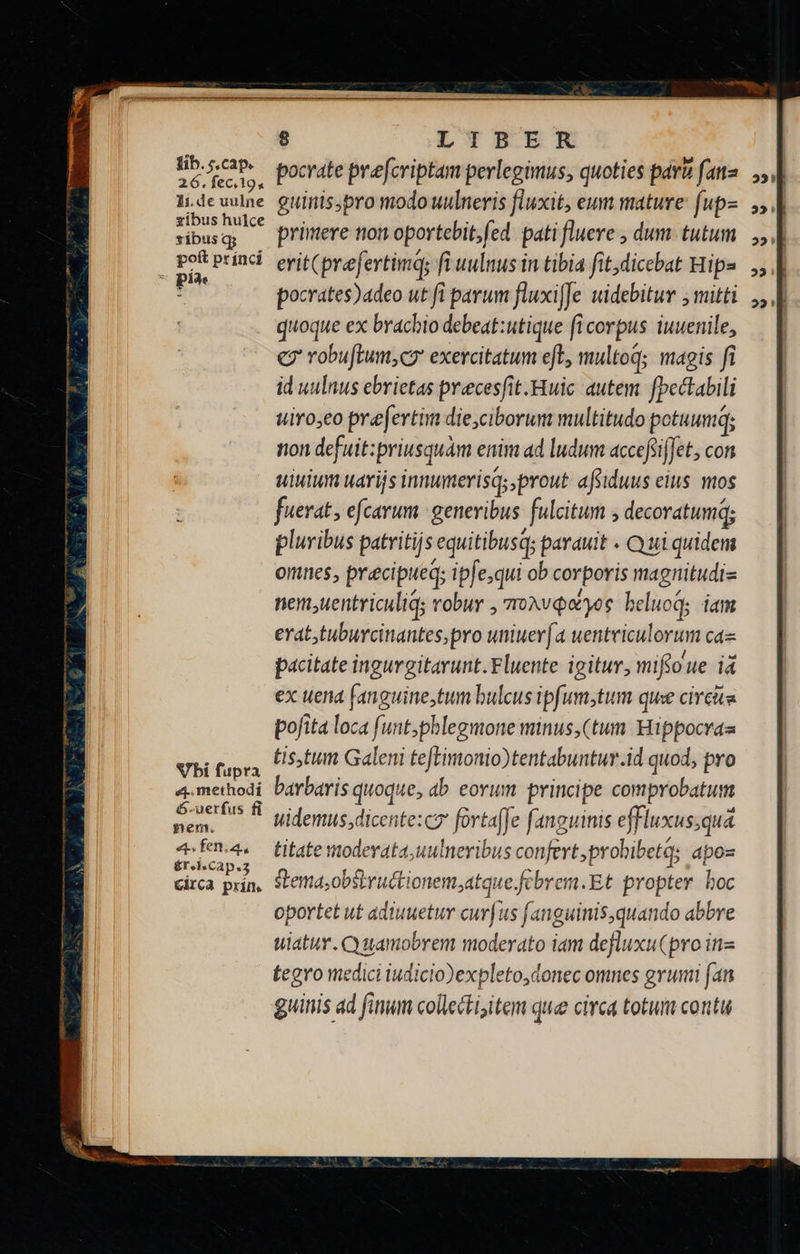 8 LIBER
lib. 5. cap.
26. sec. 19.
li. de uulne
ribus hulce
ribusq;
post princi
piã.
pocrate præscriptam perlegimus, quoties parũ san= ,,
guinis, pro modo uulneris fluxit, eum mature sup= ,,
primere non oportebit, sed pati fluere, dum tutum ,,
erit (præsertimq; si uulnus in tibia sit, dicebat Hip= ,,
pocrates) adeo ut si parum fluxisse uidebitur, mitti ,,
quoque ex brachio debeat: utique si corpus iuuenile,
& robustum, & exercitatum est, multoq; magis si
id uulnus ebrietas præcessit. Huic autem spectabili
uiro, eo præsertim die, ciborum multitudo potuumq;
non defuit: priusquàm enim ad ludum accessisset, con
uiuium uarijs innumerisq;, prout assiduus eius mos
fuerat, escarum generibus fulcitum, decoratumq;
pluribus patritijs equitibusq; parauit. Qui quidem
omnes, præcipueq; ipse, qui ob corporis magnitudi=
nem, uentriculiq; robur, πολυφάγος heluoq; iam
erat, tuburcinantes, pro uniuersa uentriculorum ca=
pacitate ingurgitarunt. Fluente igitur, misso ue iã
ex uena sanguine, tum hulcus ipsum, tum quæ circũ=
posita loca sunt, phlegmone minus, (tum Hippocra=
tis, tum Galeni testimonio) tentabuntur. id quod, pro
barbaris quoque, ab eorum principe comprobatum
uidemus, dicente: & fortasse sanguinis effluxus, quã
titate moderata, uulneribus confert, prohibetq; apo=
stema, obstructionem, atque febrem. Et propter hoc
oportet ut adiuuetur cursus sanguinis, quando abbre
uiatur. Quamobrem moderato iam defluxu (pro in=
tegro medici iudicio) expleto, donec omnes grumi san
guinis ad sinum collecti, item quæ circa totum contu
Vbi supra
4. methodi
6. uersus fi
nem.
4. fen. 4.
tr. i. cap. 3
circa prin.